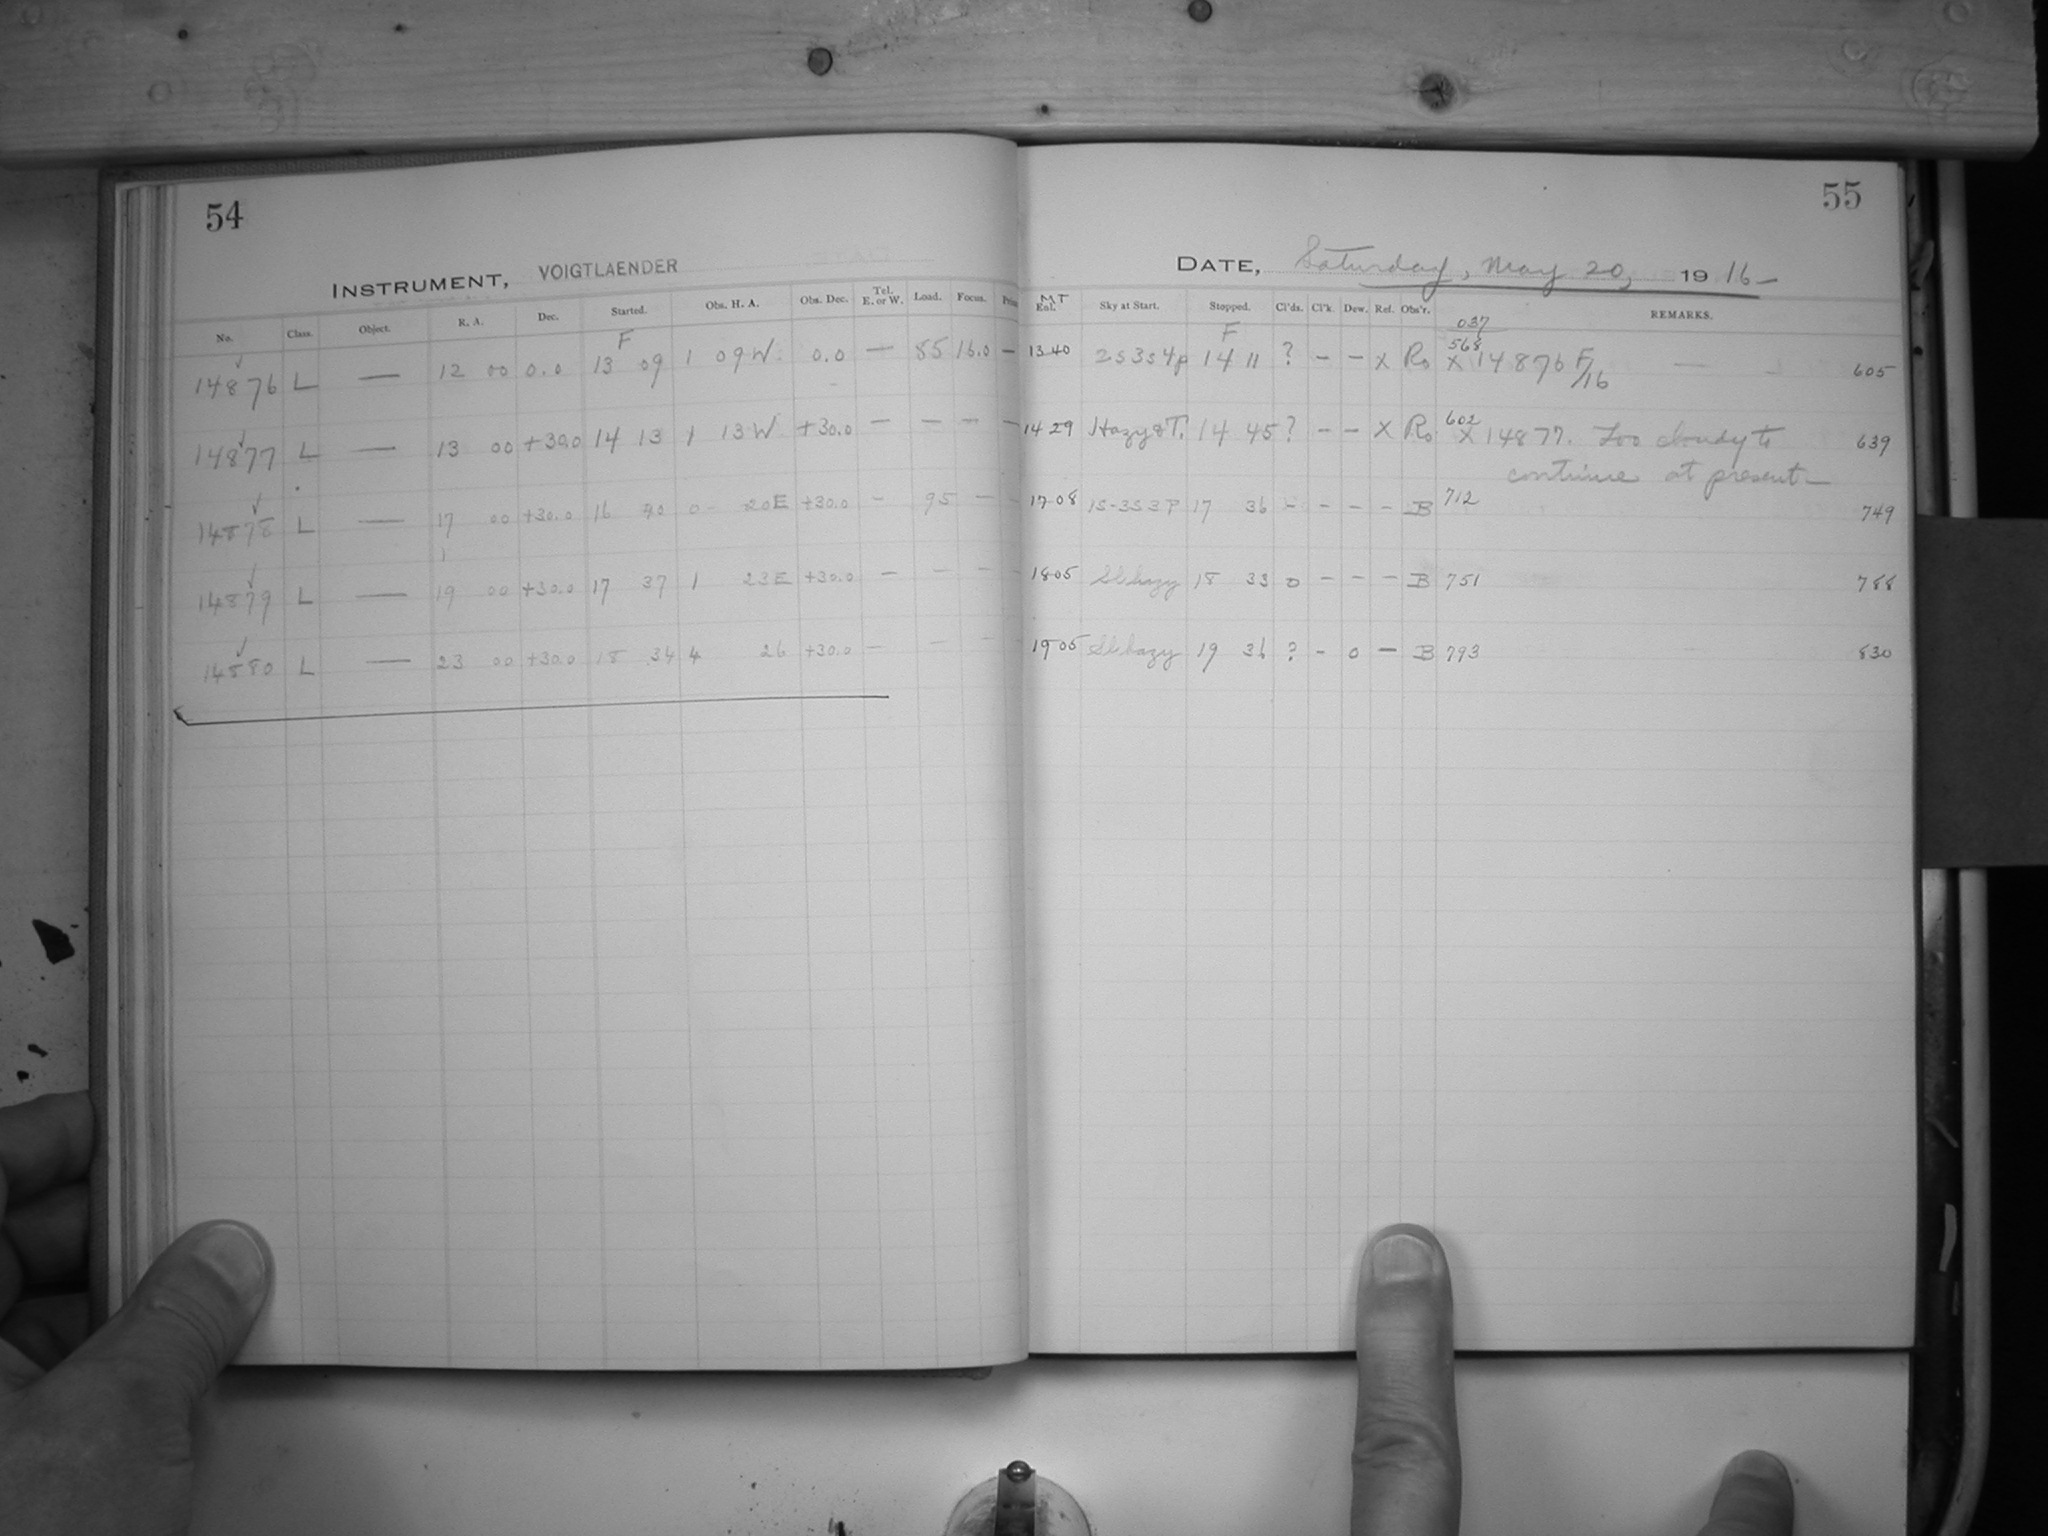 54
55
INSTRUMENT, VOIGTLAENDER
DATE, Saturday, May 20, 1916
No. Class. Object. R. A. Dec. Started. Obs. H. A. Obs. Dec. Tel. E. or W. Load. Focus. MT Sky at Start. Stopped. Cl'ds. Cl'k. Dew. Ref. Obs'r. REMARKS.
F F 037
14876 L — 12 00 0.0 13 09 1 09 W. 0.0 — 85 16.0 — 13 40 2s3s4p 14 11 ? — — x Ro 568 x 14876 F/16 605
14877 L — 13 00 +30.0 14 13 1 13 W +30.0 — — — — 14 29 Hazy&T. 14 45 ? — — x Ro 602 x 14877. Too cloudy to 639
continue at present—
14878 L — 17 00 +30.0 16 40 0 20E +30.0 — 95 — — 17 08 1S-3S3P 17 36 - - - - B 712 749
14879 L — 19 00 +30.0 17 37 1 23E +30.0 — — — — 18 05 Sl hazy 18 33 0 - - - B 751 788
14880 L — 23 00 +30.0 18 34 4 26 +30.0 — — — 19 05 Sl hazy 19 36 ? - 0 — B 793 830